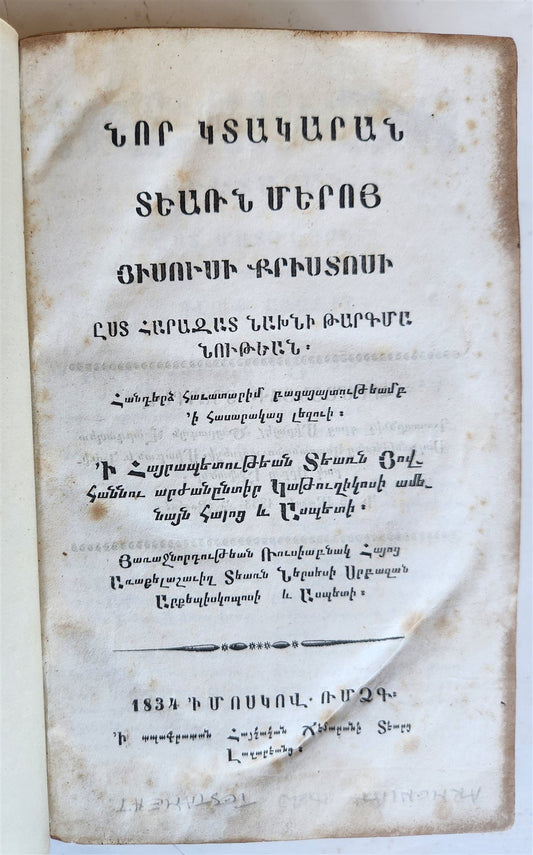 ՆՈՐ ԿՏԱԿԱՐԱՆ
ՏԵԱՌՆ ՄԵՐՈՅ
ՅԻՍՈՒՍԻ ՔՐԻՍՏՈՍԻ
ԸՍՏ ՀԱՐԱԶԱՏ ՆԱԽՆԻ ԹԱՐԳՄԱ
ՆՈՒԹԵԱՆ։
Հանդերձ հաւատարիմ բացայայտութեամբ
՚ի հասարակաց լեզուի։
՚Ի Հայրապետութեան Տեառն Յով_
հաննու արժանընտիր Կաթուղիկոսի ամե_
նայն Հայոց և Ասպետի։
Յառաջնորդութեան Ռուսիաբնակ Հայոց
Առաքելաշաւիղ Տեառն Ներսեսի Սրբազան
Արքեպիսկոպոսի և Ասպետի։
1834 ՚Ի ՄՈՍԿՈՎ. ՌՄՁԳ։
՚Ի տպագրատան Հայկական Ճեմարանի Տեարց
Լազարեանց։